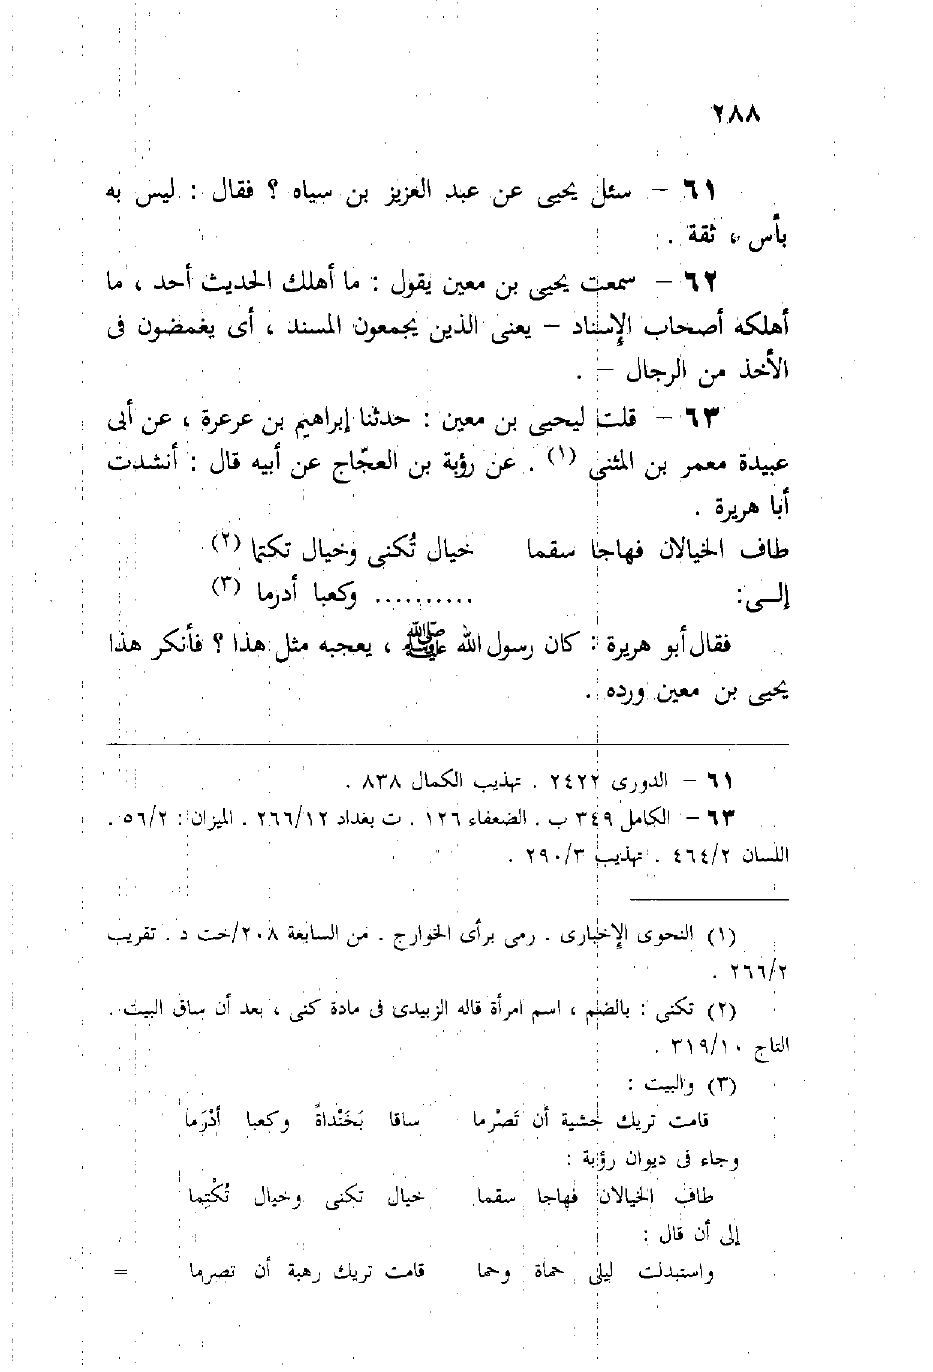 ٢٨٨
٦١ – سئل يحيى عن عبد العزيز بن سياه ؟ فقال : ليس به
بأس ، ثقة .
٦٢ – سمعت يحيى بن معين يقول : ما أهلك الحديث أحد ، ما
أهلكه أصحاب الإسناد – يعنى الذين يجمعون المسند ، أى يغمضون فى
الأخذ من الرجال – .
٦٣ – قلت ليحيى بن معين : حدثنا إبراهيم بن عرعرة ، عن أبى
عبيدة معمر بن المثنى (١) . عن رؤبة بن العجّاج عن أبيه قال : أنشدت
أبا هريرة .
طاف الخيالان فهاجا سقما خيال تُكنى وخيال تكتما (٢)
إلى: .......... وكعبا أدرما (٣)
فقال أبو هريرة : كان رسول الله ﷺ ، يعجبه مثل هذا ؟ فأنكر هذا
يحيى بن معين ورده .
٦١ – الدورى ٢٤٢٢ . تهذيب الكمال ٨٣٨ .
٦٣ – الكامل ٣٤٩ ب . الضعفاء ١٢٦ . ت بغداد ٢٦٦/١٢ . الميزان : ٥٦/٢ .
اللسان ٤٦٤/٢ . تهذيب ٢٩٠/٣ .
(١) النحوى الإخبارى . رمى برأى الخوارج . من السابعة ٢٠٨/خت د . تقريب
٢٦٦/٢ .
(٢) تكنى : بالضم ، اسم امرأة قاله الزبيدى فى مادة كنى ، بعد أن ساق البيت .
التاج ٣١٩/١٠ .
(٣) والبيت :
قامت تريك خشية أن تَصْرما ساقا بَخَنْداةً وكعبا أدْرَما
وجاء فى ديوان رؤبة :
طاف الخيالان فهاجا سقما خيال تكنى وخيال تُكْتِما
إلى أن قال :
واستبدلت ليلى حماة وحما قامت تريك رهبة أن تصرما =